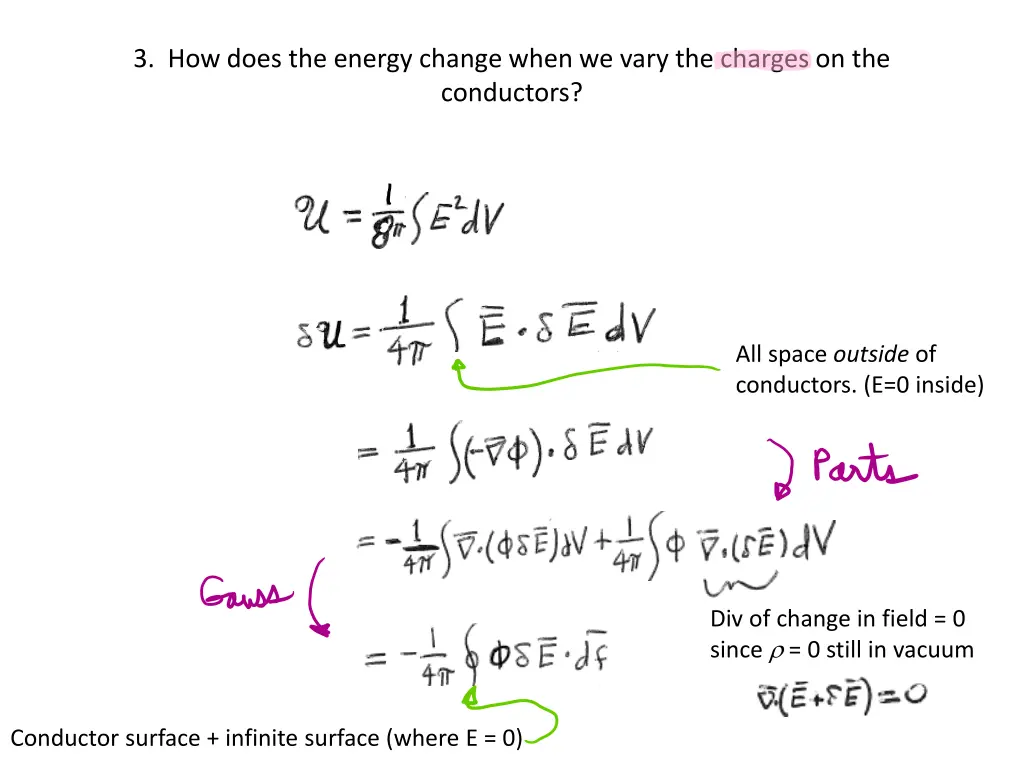 3. How does the energy change when we vary the charges on the
conductors?
𝒰 = 1/8π ∫ E² dV
δ𝒰 = 1/4π ∫ E̅ · δE̅ dV
All space outside of
conductors. (E=0 inside)
= 1/4π ∫ (-∇̅ϕ) · δE̅ dV
Parts
= - 1/4π ∫ ∇̅·(ϕ δE̅) dV + 1/4π ∫ ϕ ∇̅·(δE̅) dV
Gauss
Div of change in field = 0
since ρ = 0 still in vacuum
= - 1/4π ∮ ϕ δE̅ · df̅
∇̅·(E̅ + δE̅) = 0
Conductor surface + infinite surface (where E = 0)